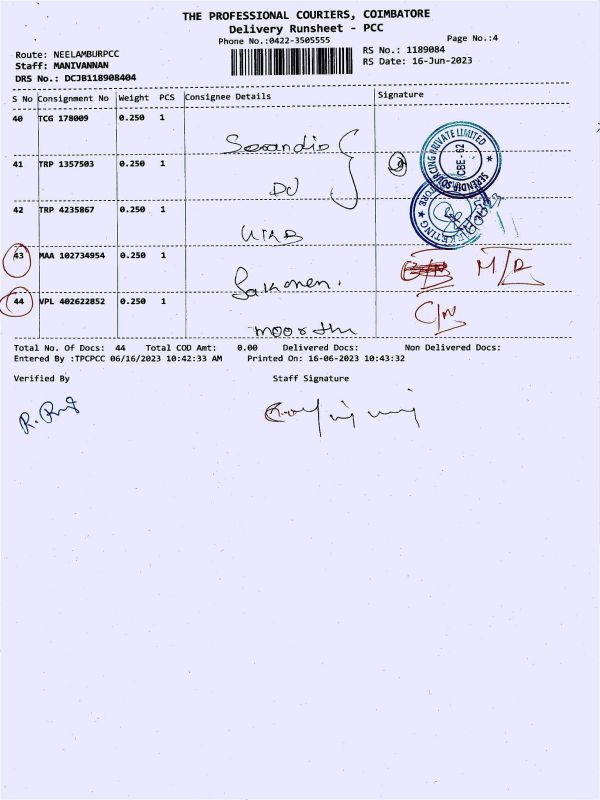 THE PROFESSIONAL COURIERS, COIMBATORE
Delivery Runsheet - PCC
Phone No.:0422-3505555
Page No.:4
Route: NEELAMBURPCC
Staff: MANIVANNAN
DRS No.: DCJB118908404
RS No.: 1189084
RS Date: 16-Jun-2023
S No Consignment No Weight PCS Consignee Details Signature
40 TCG 178009 0.250 1
Serandip
41 TRP 1357503 0.250 1
DO
SERENDIP SOURCING PRIVATE LIMITED
CBE-62
42 TRP 4235867 0.250 1
43 MAA 102734954 0.250 1
M/R
44 VPL 402622852 0.250 1
C/N
moorthi
Total No. Of Docs: 44 Total COD Amt: 0.00 Delivered Docs: Non Delivered Docs:
Entered By :TPCPCC 06/16/2023 10:42:33 AM Printed On: 16-06-2023 10:43:32
Verified By Staff Signature